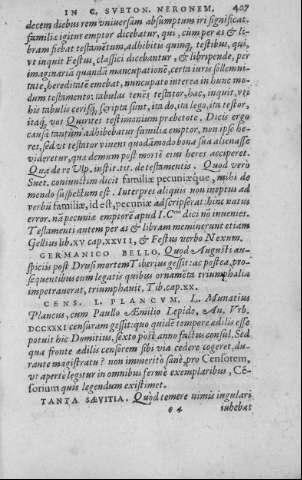 IN C. SVETON. NERONEM. 407
decem diebus rem vniuersam absumptum iri significat.
familiæ igitur emptor dicebatur, qui, cum per æs & li-
bram fiebat testamētum, adhibitis quinq. testibus, qui,
vt inquit Festus, classici dicebantur, & libripende, per
imaginaria quandā mancupationē, certa iuris sollemni-
tate, hereditatē emebat, nuncupato interea in hunc mo-
dum testamento: tabulas tenēs testator, hæc, inquit, vt
his tabulis cerisq́; scripta sunt, ita do, ita lego, ita testor,
itaq́; vos Quirites testimonium prebetote. Dicis ergo
causa tantum adhibebatur familiæ emptor, non ipse he-
res, sed vt testator viuens quodāmodo bona sua alienasse
videretur, quæ demum post mortē eius heres acciperet.
Quæ de re Vlp. instit. tit. de testamentis. Quod vero
Suet. coniunctim dicit familiæ pecuniæque, mihi de
mendo suspectum est. Interpres aliquis non ineptus ad
verba familiæ, id est, pecuniæ adscripserat: hinc natus
error. nā pecuniæ emptorē apud I.Cᵗᵒˢ dici nō inuenies.
Testamenti autem per æs & libram meminerunt etiam
Gellius lib. XV cap. XXVII, & Festus verbo Nexum.
GERMANICO BELLO. Quod Augusti au-
spiciis post Drusi mortem Tiberius gessit: ac postea, pro-
sequentibus eum legatis quibus ornamēta triumphalia
impetrauerat, triumphauit, Tib. cap. XX.
CENS. L. PLANCVM. L. Munatius
Plancus, cum Paullo Æmilio Lepido, An. Vrb.
DCCXXXI censuram gessit: quo quidē tempore ædilis esse
potuit hic Domitius, sexto post anno factus consul. Sed
qua fronte ædilis censorem sibi via cedere cogeret, du-
rante magistratu? non immerito sanè pro Censorem,
vt apertè legitur in omnibus fermè exemplaribus, Cē-
sorium quis legendum existimet.
TANTA SÆVITIA. Quòd temere nimis singulari
e 4 iubebat